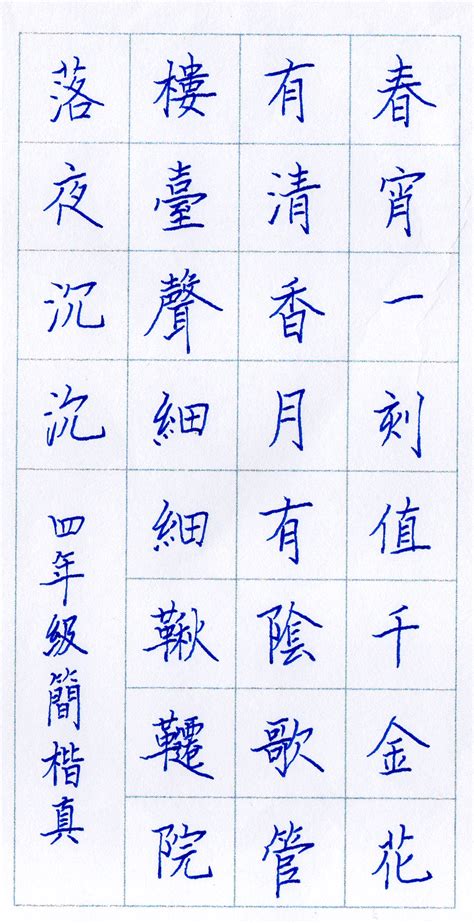 春宵一刻值千金花
有清香月有陰歌管
樓臺聲細細鞦韆院
落夜沉沉
四年級簡楷真